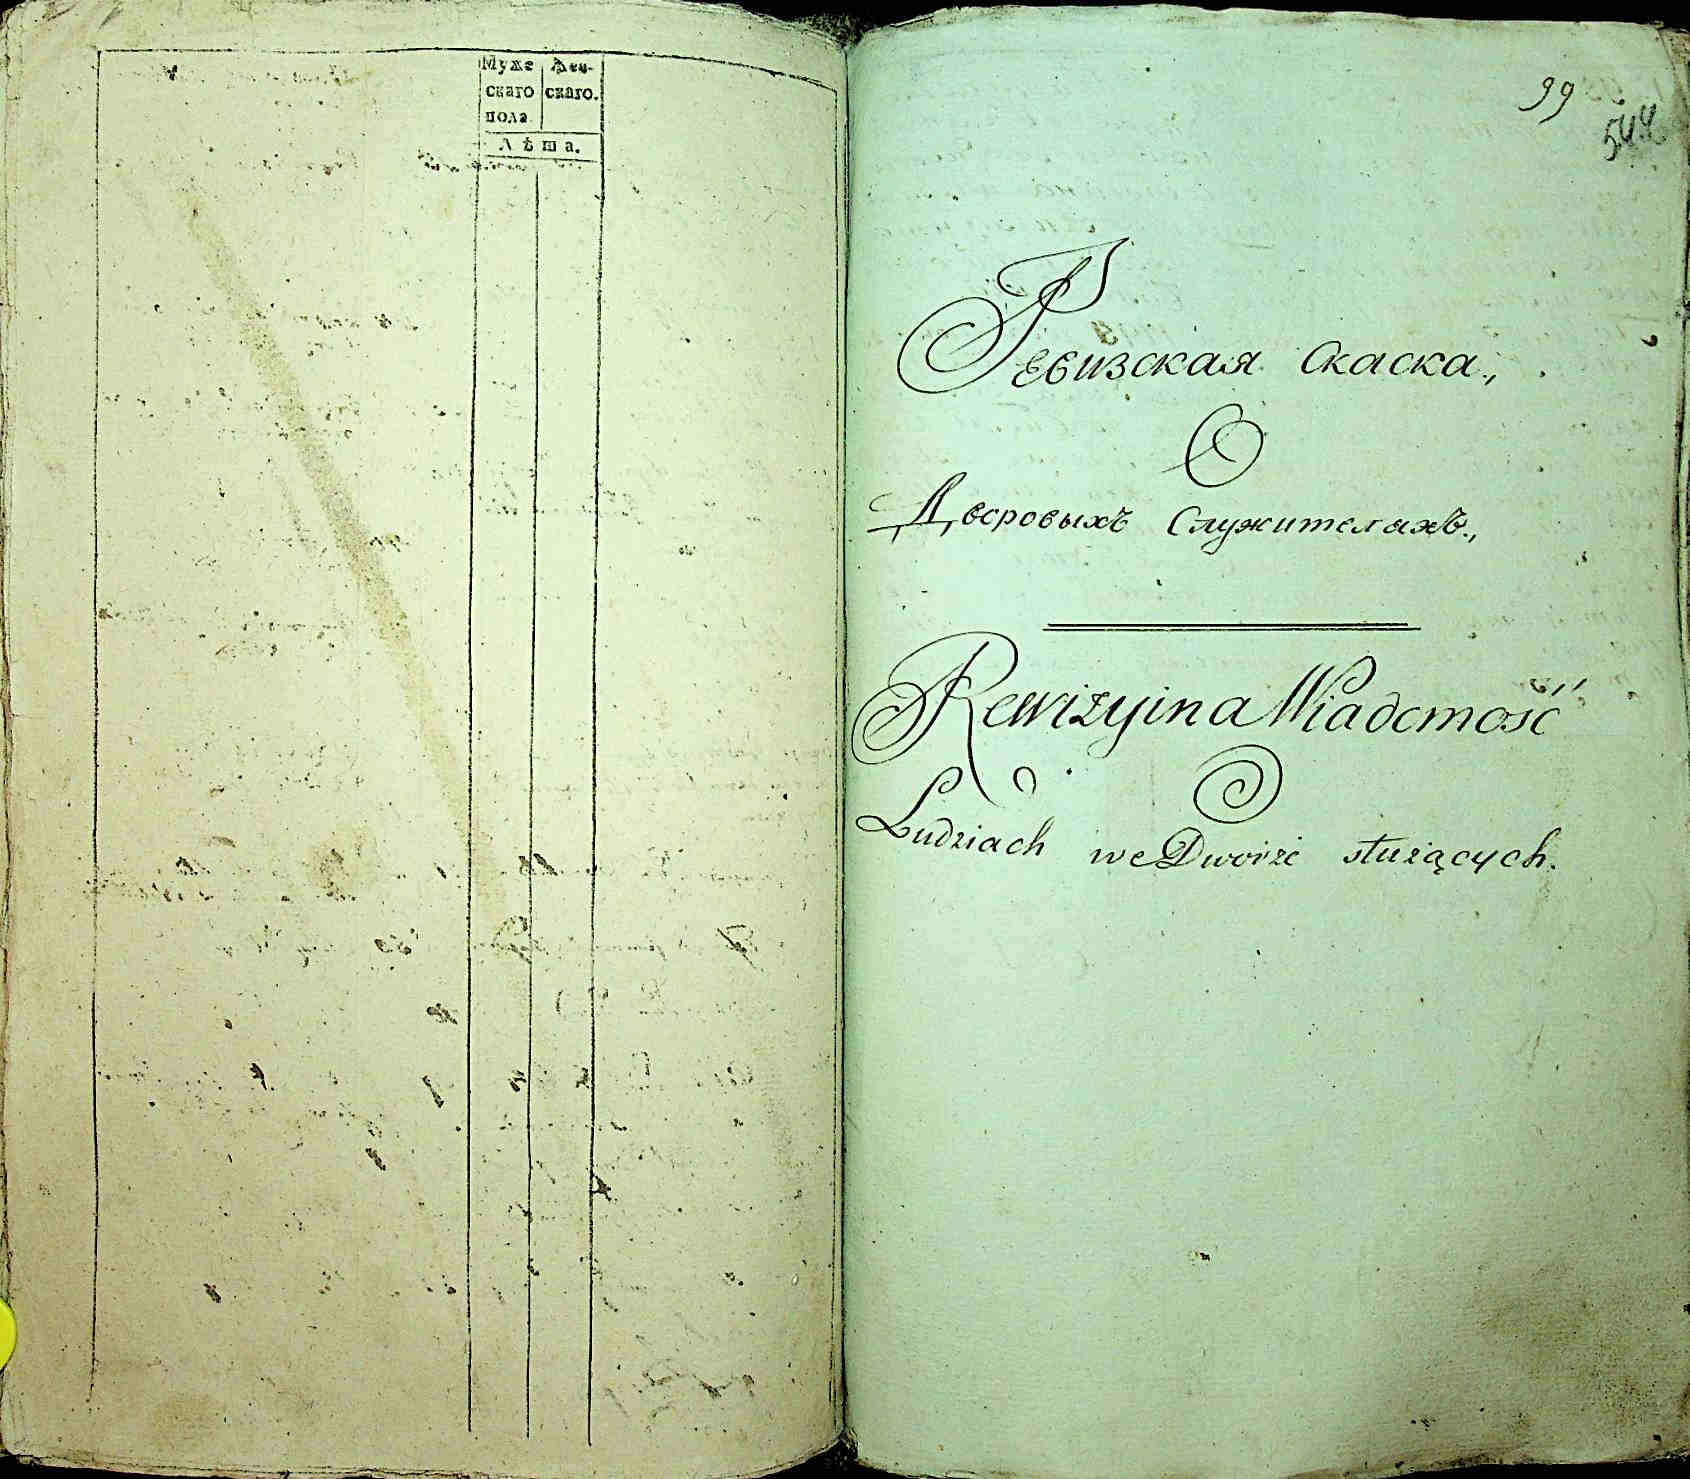 Муже Жен-
скаго скаго.
пола
Лѣта.
99
544
Ревизская Скаска.,
О
Дворовыхъ Служителяхъ.,
Rewizyina Wiadomość
O
Ludziach we Dworze służących.